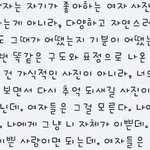 자는 자기가 좋아하는 여자 사진
는게 아니라, 다양하고 자연스러
도 그때가 어땠는지 기분이 어땠
번 똑같은 구도와 표정으로 나온
건 가식적인 사진이 아니라, 너의
보면서 다시 추억 되새길 사진이
인데, 여자들은 그걸 모른다. 나
, 나에게 그냥 니 자체가 이쁜데,
이쁜 사람이면 되는데, 여자들은